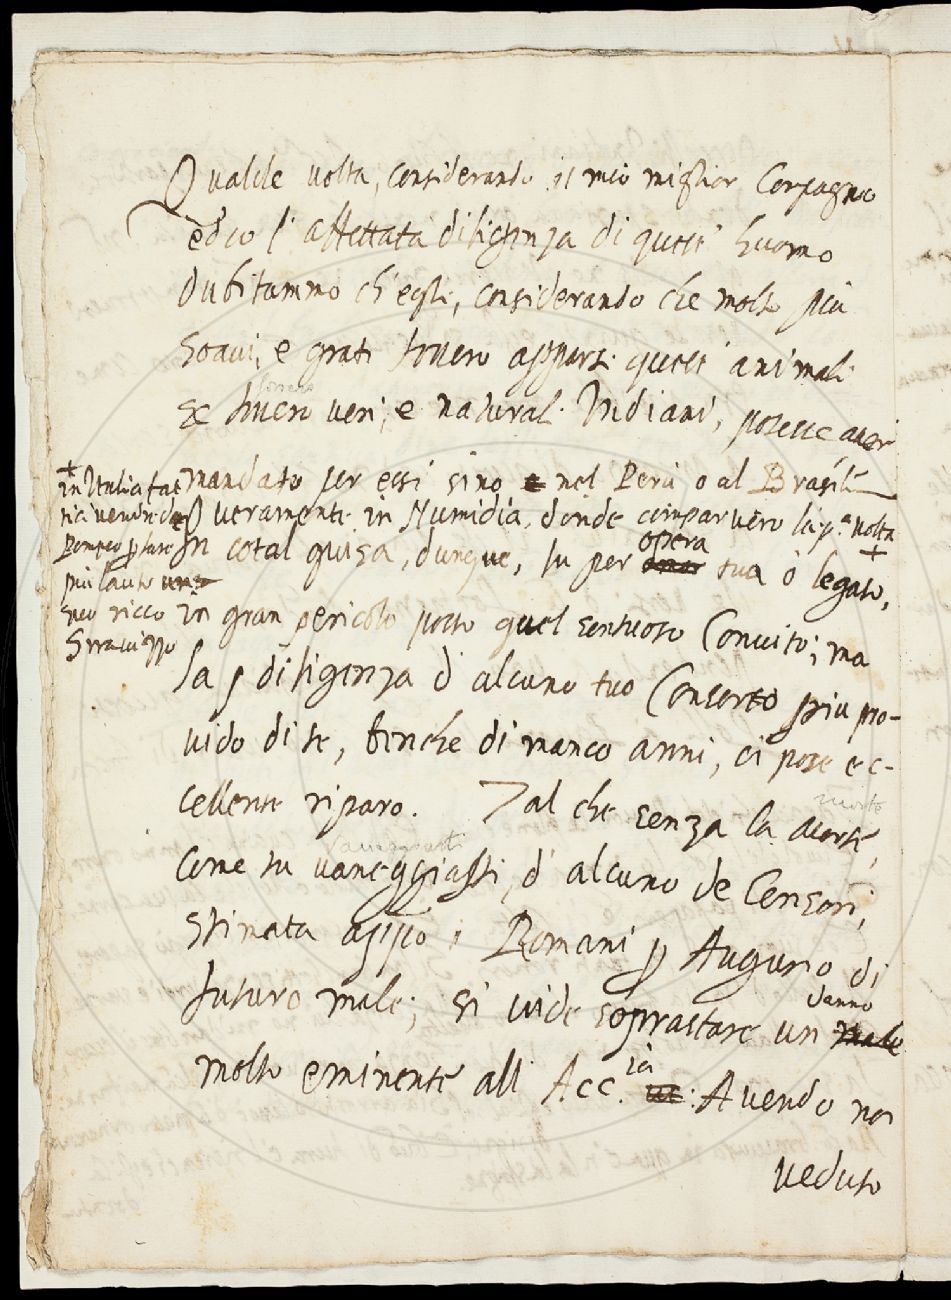 Qualche volta, considerando il mio miglior Compagno
ed io l' affettata diligenza di quest' huomo
dubitammo ch' egli, considerando che molto più
soavi, e grati fossero apparsi questi animali
se fossero veri, e naturali Indiani, potesse aver
mandato per essi sino nel Perù o al Brasile
O veramente in Numidia, donde comparvero la p.ª volta
+
in Italia fat
tici vendere da
Pompeo p fare
più lauto
suo ricco
Stravizzo
In cotal guisa, dunque, fu per opera tua ò legato, +
in gran pericolo posto quel sontuoso Convito; ma
la diligenza d' alcuno tuo Consorto più pro-
vido di te, benche di manco anni, ci pose ec-
cellente riparo. Tal che senza la morte,
Come tu vaneggiasti, d' alcuno de Censori,
stimata appo i Romani p Augurio di
futuro male; si vide soprastare un danno
molto eminente all Acc.ia: Avendo noi
veduto